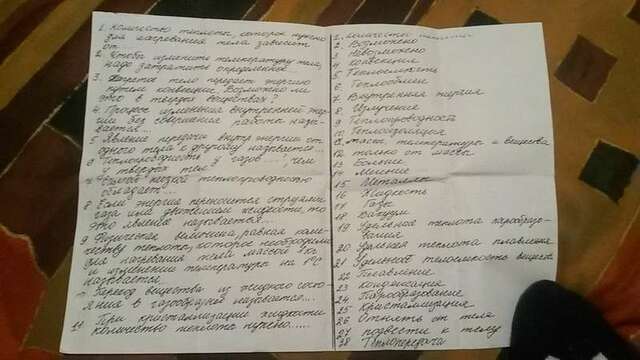 1. Количество теплоты, которое нужно
для нагревания тела зависит
от
2. Чтобы изменить температуру тела,
надо затратить определенное
3. тело передает энергию
путем конвекции. Возможно ли
это в твердых веществах?
4. Процес изменения внутренней энер
гии без совершения работы назы-
вается...
5 Явление передачи внутр энергии от
одного тела к другому называется
6 Теплопроводность у газов ...., чем
у твердых тел
7 Самой низкой теплопроводностью
обладает...
8 Если энергия переносится струями
газа или движением жидкости, то
это явление называется...
9 Физическая величина, равная коли-
честву теплоты, которое необходимо
для нагревания тела массой 1 кг
и изменении температуры на 1°С
называется
Переход вещества из жидкого состо-
яния в газообразное называется...
11 При кристаллизации жидкости
количество теплоты нужно.....
1. количество
2 Возможно
3 Невозможно
4 конвекция
5 Теплоемкость
6 Теплообмен
7 Внутренняя энергия
8 Излучение
9 Теплопроводность
10 Теплоизоляция
массы, температуры и вещества
12 только от массы
13 Больше
14 Меньше
15 Металлы
16 Жидкость
17 Газы
18 Вакуум
19 Удельная теплота парообразо-
вания
20 Удельная теплота плавления
21 Удельная теплоемкость вещества
22 Плавление
23 Конденсация
24 Парообразование
25 Кристаллизация
26 Отнять от тела
27 подвести к телу
28 Теплопередача